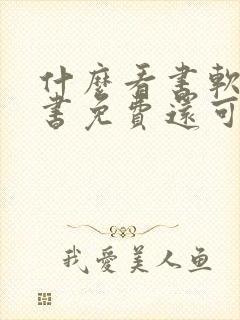 什麼看書軟
書免費還可
我愛美人鱼